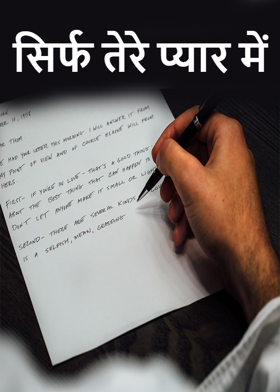 सिर्फ तेरे प्यार में
11, 1958
THOM
HAD YOUR LETTER THIS MORNING. I WILL ANSWER IT FROM
MY POINT OF VIEW AND OF COURSE ELAINE WILL FROM
HERS.
FIRST - IF YOU'RE IN LOVE - THAT'S A GOOD THING
ABOUT THE BEST THING THAT CAN HAPPEN
DON'T LET ANYONE MAKE IT SMALL OR
SECOND - THERE ARE SEVERAL KINDS
IS A SELFISH, MEAN, GRASPING